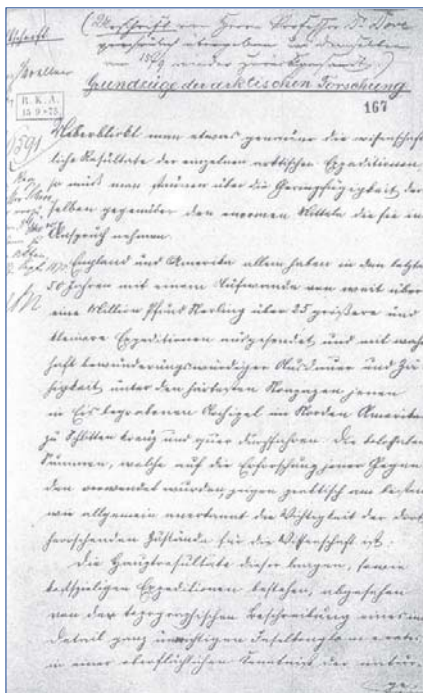 Abschrift.
(Urschrift von Herrn Professor Dr. Dove
persönlich übergeben und demselben
am 15/9 wieder zurückgesandt.)
Grundzüge der arktischen Forschung
R. K. A.
15 9 • 75
167
Ueberblickt man etwas genauer die wissenschaft
liche Resultate der einzelnen arktischen Expeditionen,
so muß man staunen über die Geringfügigkeit der
selben gegenüber den enormen Mitteln die sie in
Anspruch nehmen.
England und Amerika allein haben in den letzten
50 Jahren mit einem Aufwande von weit über
eine Million Pfund Sterling über 25 größere und
kleinere Expeditionen ausgesendet und mit wahr
haft bewunderungswürdiger Ausdauer und Zä
higkeit unter den härtesten Strapazen jenen
in Eis begrabenen Archipel im Norden Amerikas
zu Schlitten kreuz und quer durchfahren. Die kolossalen
Summen, welche auf die Erforschung jener Gegen
den verwendet wurden, zeigen praktisch am besten
wie allgemein anerkannt die Wichtigkeit der dort
herrschenden Zustände für die Wissenschaft ist.
Die Hauptresultate dieser langen, sowie
kostspieligen Expeditionen bestehen, abgesehen
von der topographischen Beschreibung eines im
Detail ganz unwichtigen Inselkonglomerates
in einer oberflächlichen Kenntniß der natür-